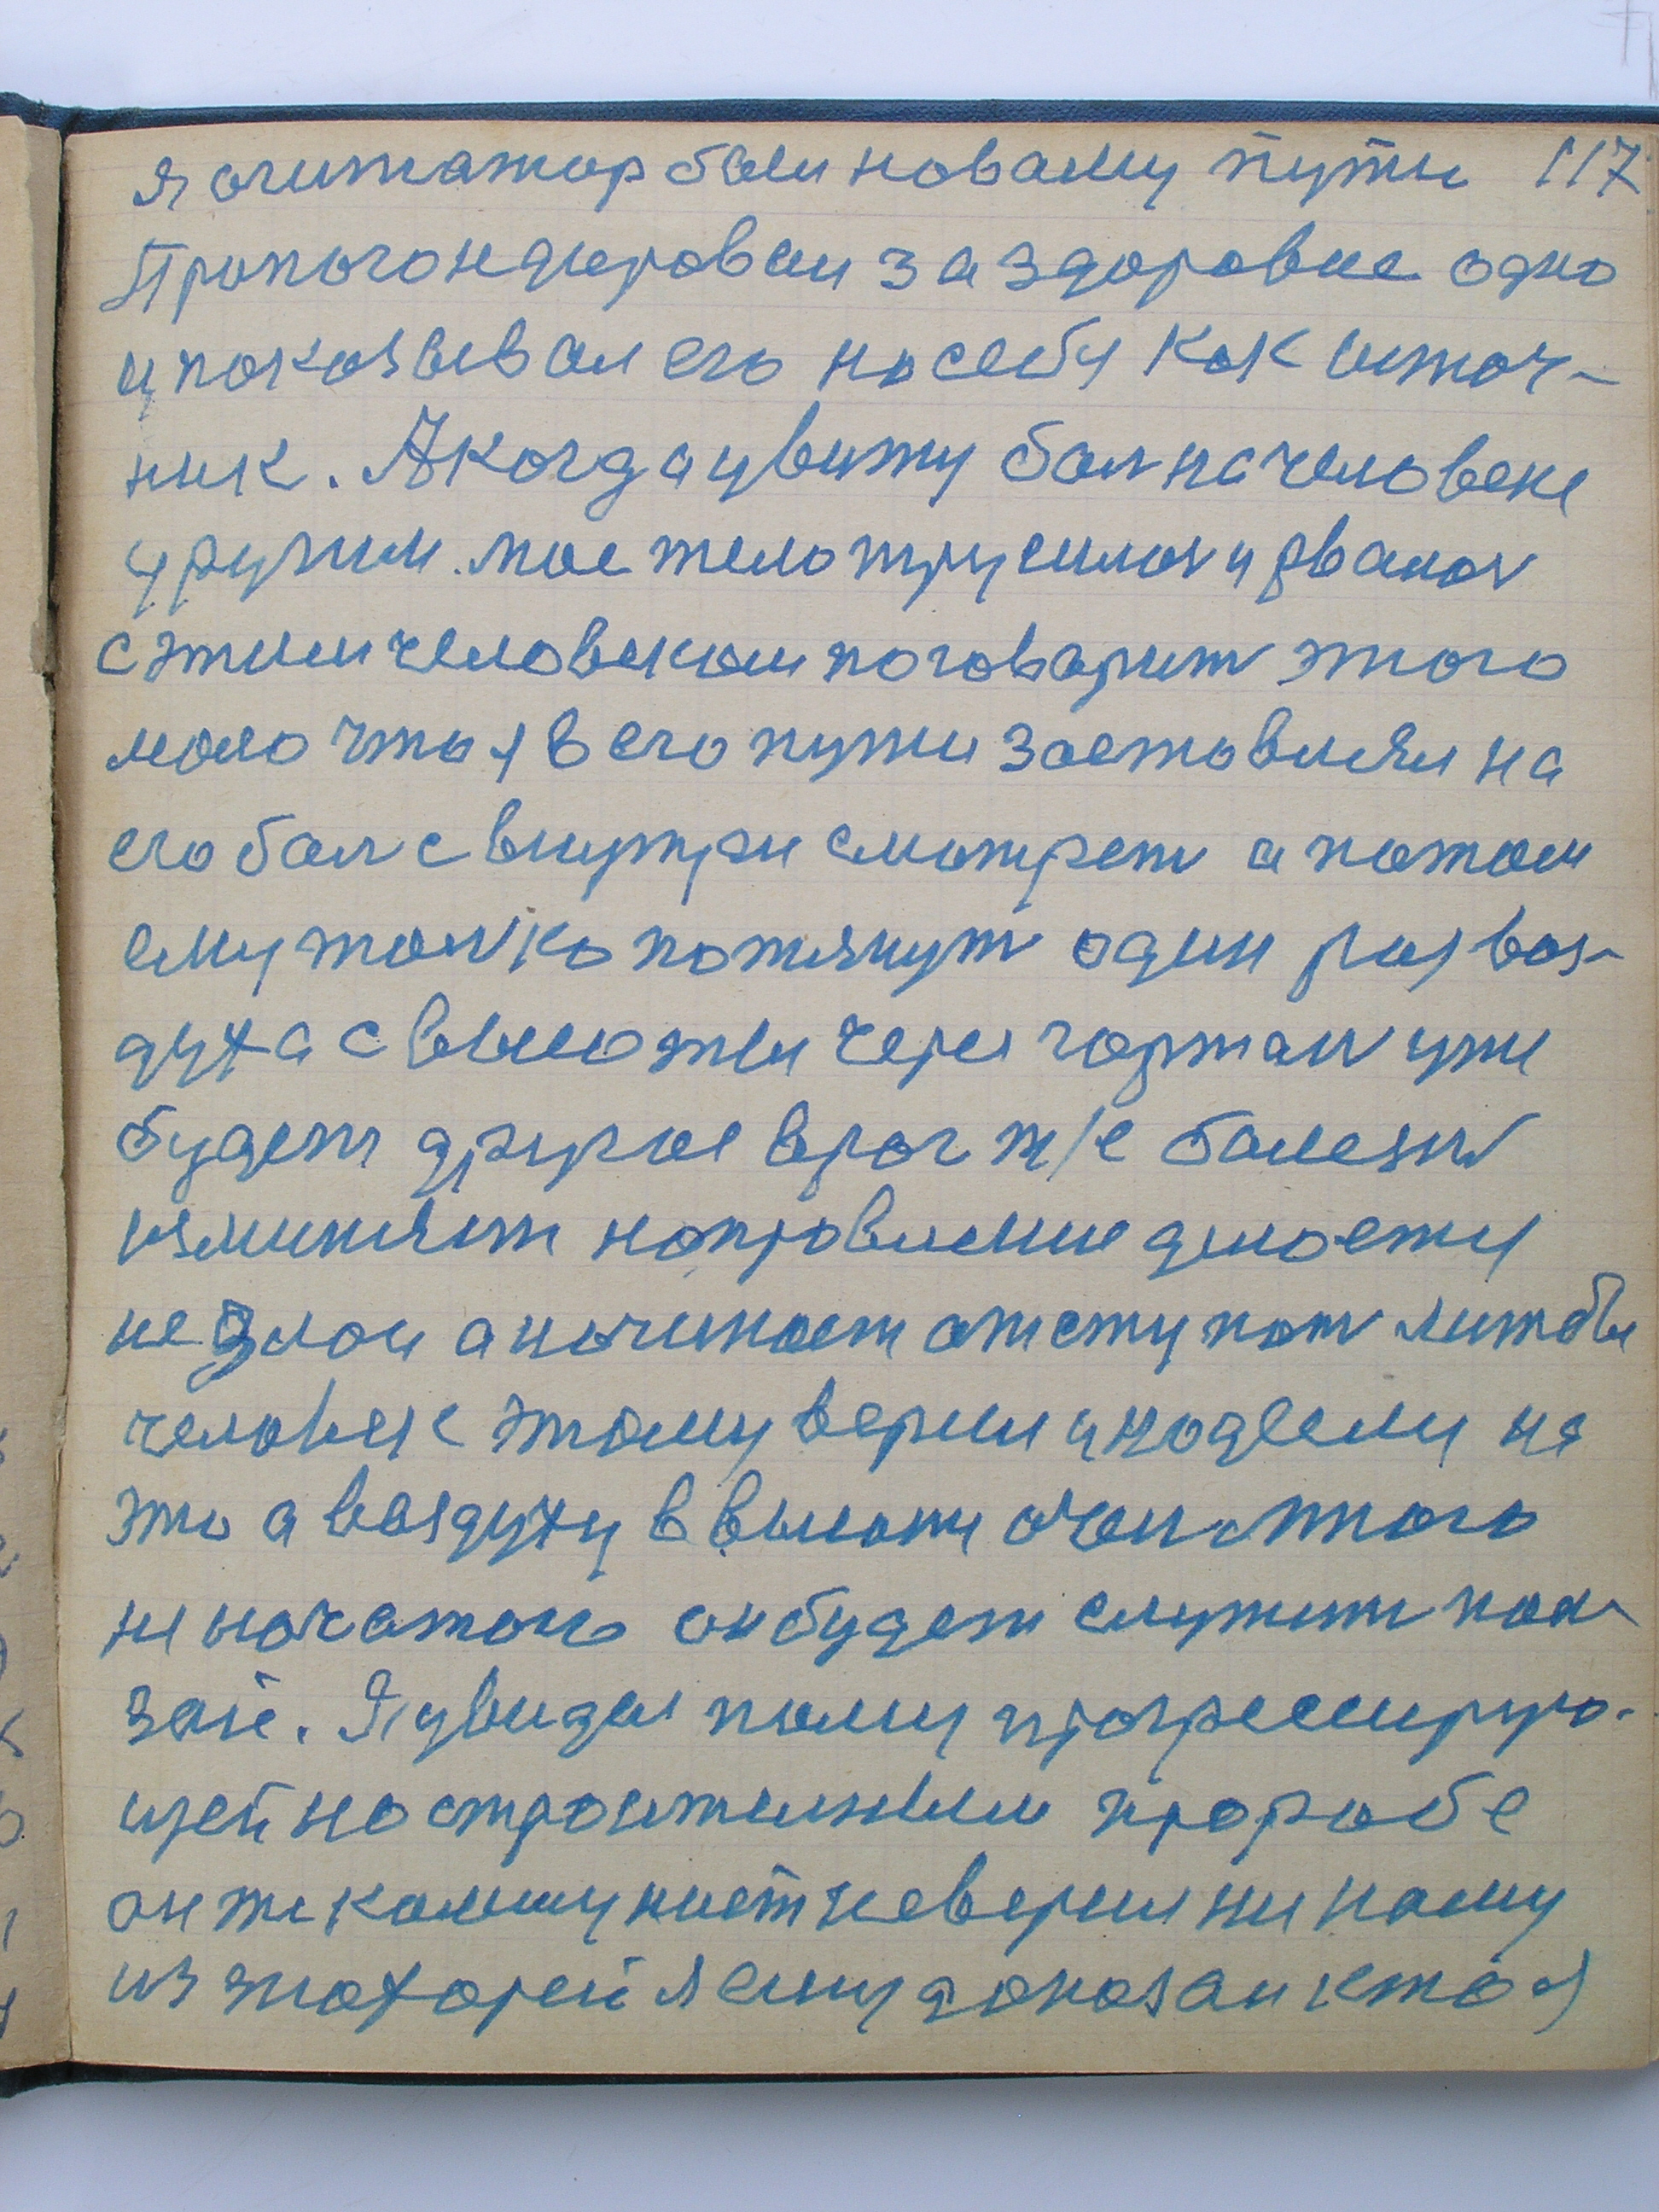 я агитатор был новому пути 117
Пропогондировал за здоровие одно
и показывал его на себи как источ-
ник. А когда увижу бал на человеке
у других мое тело трусилося и рвалося
с этим человеком поговарит этого
мало что я в его пути заставлял на
его бал с внутри смотрет а потом
ему толко потянут один раз воз-
духа с высоты через гортан уже
будет другое враг т/е болезн
изминяет направление делоетця
не злои а начинает отступат лиш бы
человек этому верил и надеелся на
это а воздуху в высоте очен много
не початого он будет служит пол-
зай. Я увидал тому прогресирую-
щей на строителным прорабе
он же комунист не верил ни кому
из знахорей я ему доказал кто я